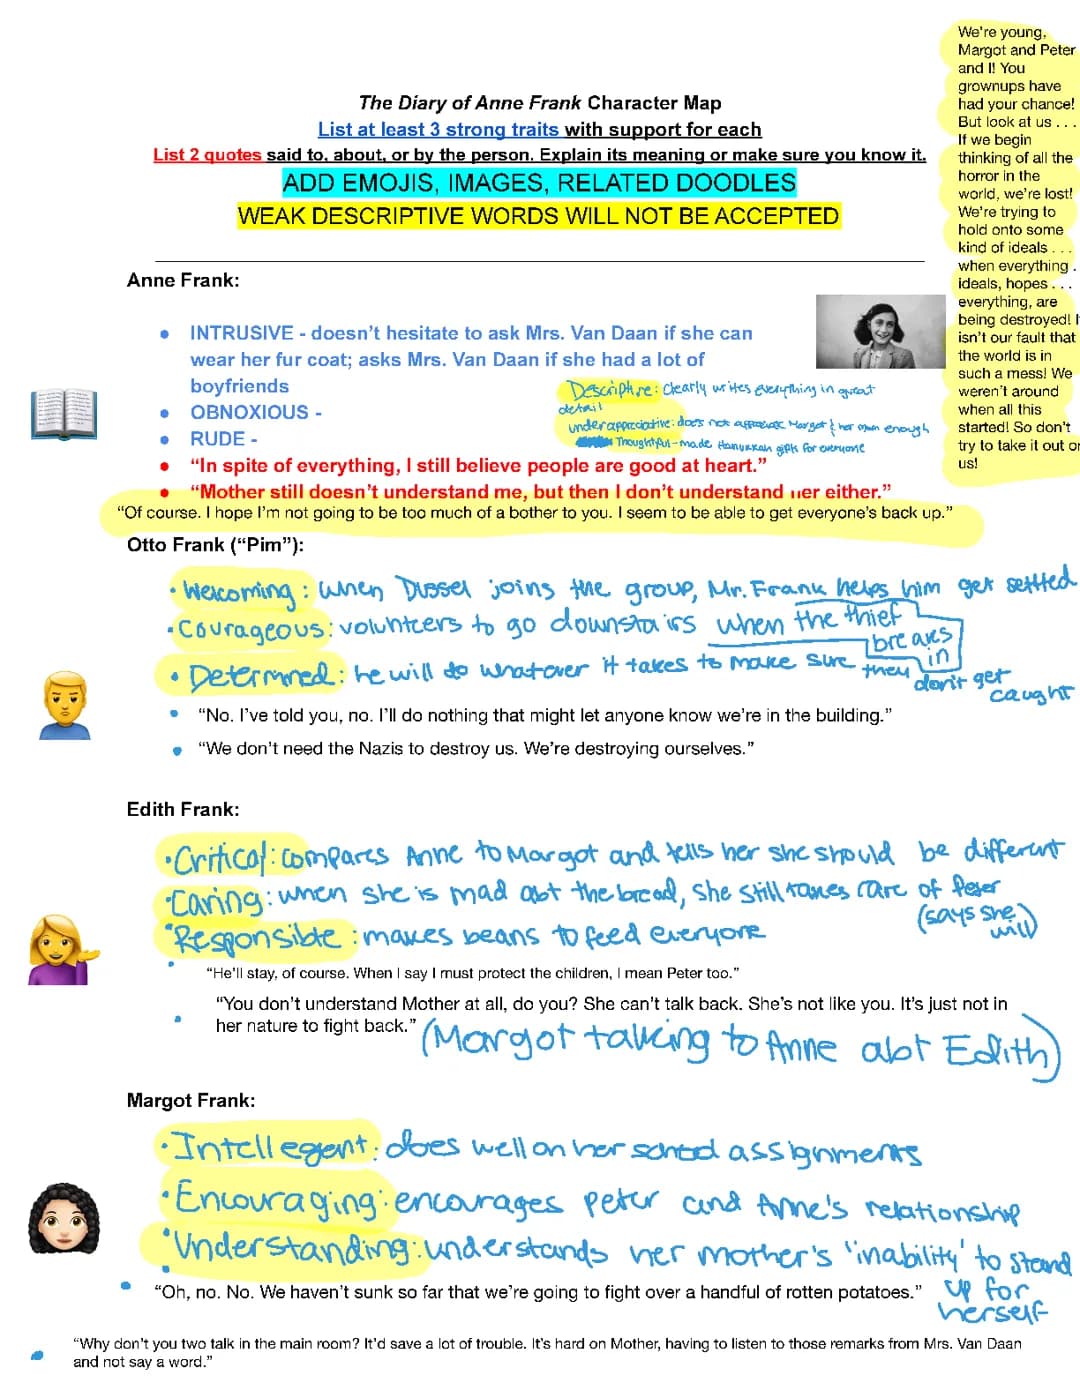 We're young,
Margot and Peter
and I! You
grownups have
had your chance!
But look at us . . .
If we begin
thinking of all the
horror in the
world, we're lost!
We're trying to
hold onto some
kind of ideals . . .
when everything .
ideals, hopes . . .
everything, are
being destroyed! I
isn't our fault that
the world is in
such a mess! We
weren't around
when all this
started! So don't
try to take it out on
us!
The Diary of Anne Frank Character Map
List at least 3 strong traits with support for each
List 2 quotes said to, about, or by the person. Explain its meaning or make sure you know it.
ADD EMOJIS, IMAGES, RELATED DOODLES
WEAK DESCRIPTIVE WORDS WILL NOT BE ACCEPTED
Anne Frank:
● INTRUSIVE - doesn't hesitate to ask Mrs. Van Daan if she can
wear her fur coat; asks Mrs. Van Daan if she had a lot of
boyfriends
● OBNOXIOUS -
● RUDE -
Descriptive: Clearly writes everything in great
detail
underappreciative: does not appreciate Margot & her mom enough
Thoughtful - made Hanukkah gifts for everyone
● "In spite of everything, I still believe people are good at heart."
● "Mother still doesn't understand me, but then I don't understand her either."
"Of course. I hope I'm not going to be too much of a bother to you. I seem to be able to get everyone's back up."
Otto Frank ("Pim"):
• Welcoming: when Dussel joins the group, Mr. Frank helps him get settled
• Courageous: volunteers to go downstairs when the thief
breaks
in
• Determined: he will do whatever it takes to make sure they
don't get
caught
• "No. I've told you, no. I'll do nothing that might let anyone know we're in the building."
• "We don't need the Nazis to destroy us. We're destroying ourselves."
Edith Frank:
• Critical: compares Anne to Margot and tells her she should be different
• Caring: when she is mad abt the bread, she still takes care of Peter
(says she
will)
• Responsible: makes beans to feed everyone
• "He'll stay, of course. When I say I must protect the children, I mean Peter too."
"You don't understand Mother at all, do you? She can't talk back. She's not like you. It's just not in
• her nature to fight back." (Margot talking to Anne abt Edith)
Margot Frank:
• Intellegent: does well on her school assignments
• Encouraging: encourages Peter and Anne's relationship
• Understanding: understands her mother's "inability" to stand
up for
herself
• "Oh, no. No. We haven't sunk so far that we're going to fight over a handful of rotten potatoes."
• "Why don't you two talk in the main room? It'd save a lot of trouble. It's hard on Mother, having to listen to those remarks from Mrs. Van Daan
and not say a word."